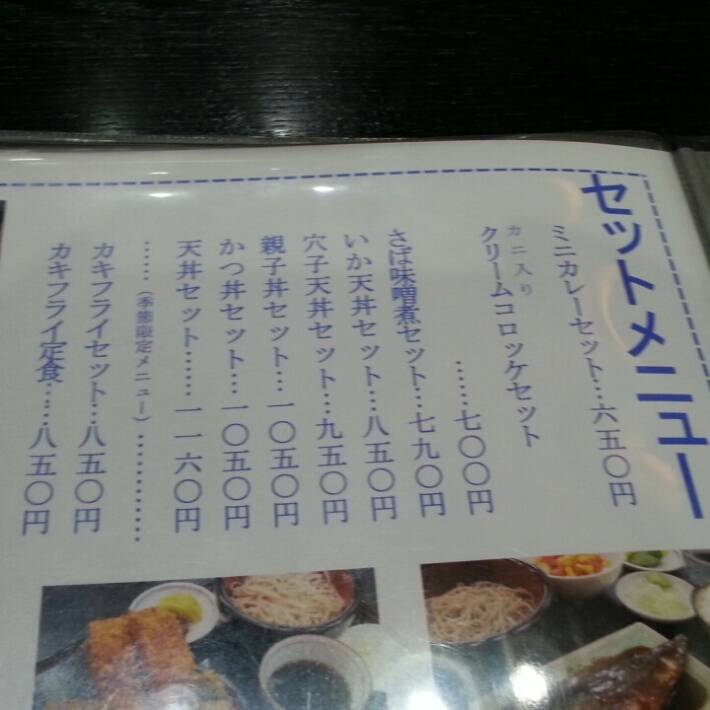 セットメニュー
ミニカレーセット…六五〇円
カニ入り
クリームコロッケセット
……七〇〇円
さば味噌煮セット…七九〇円
いか天丼セット…八五〇円
穴子天丼セット…九五〇円
親子丼セット…一〇五〇円
かつ丼セット…一〇五〇円
天丼セット……一一六〇円
……（季節限定メニュー）…………
カキフライセット…八五〇円
カキフライ定食……八五〇円